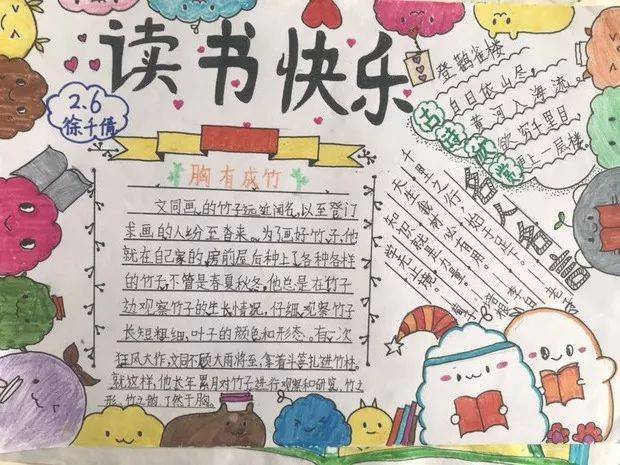 读书快乐
2.6
徐千倩
胸有成竹
文同画的竹子远近闻名,以至登门
求画的人纷至沓来。为了画好竹子,他
就在自己家的房前屋后种上了各种各样
的竹子,不管是春夏秋冬,他总是在竹子
边观察竹子的生长情况,仔细观察竹子
长短粗细,叶子的颜色和形态,有一次
狂风大作,文同不顾大雨将至,拿着斗笠扎进竹林。
就这样,他长年累月对竹子进行观察和研究,竹之
形、竹之韵,了然于胸。
登鹳雀楼
白日依山尽,
黄河入海流。
欲穷千里目,
更上一层楼。
古诗欣赏
名人名言
千里之行,始于足下。老子
天生我材必有用。李白
知识就是力量。培根
学无止境。荀子